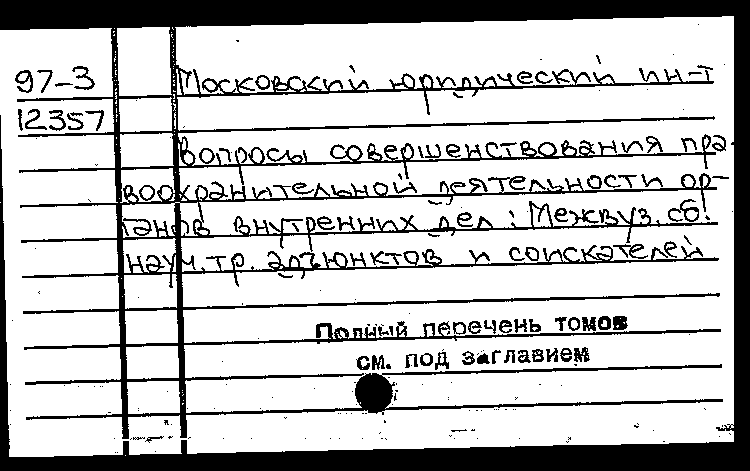 97-3 Московский юридический ин-т
12357
Вопросы совершенствования пра-
воохранительной деятельности ор-
ганов внутренних дел: Межвуз. сб.
науч. тр. адъюнктов и соискателей
Полный перечень томов
см. под заглавием